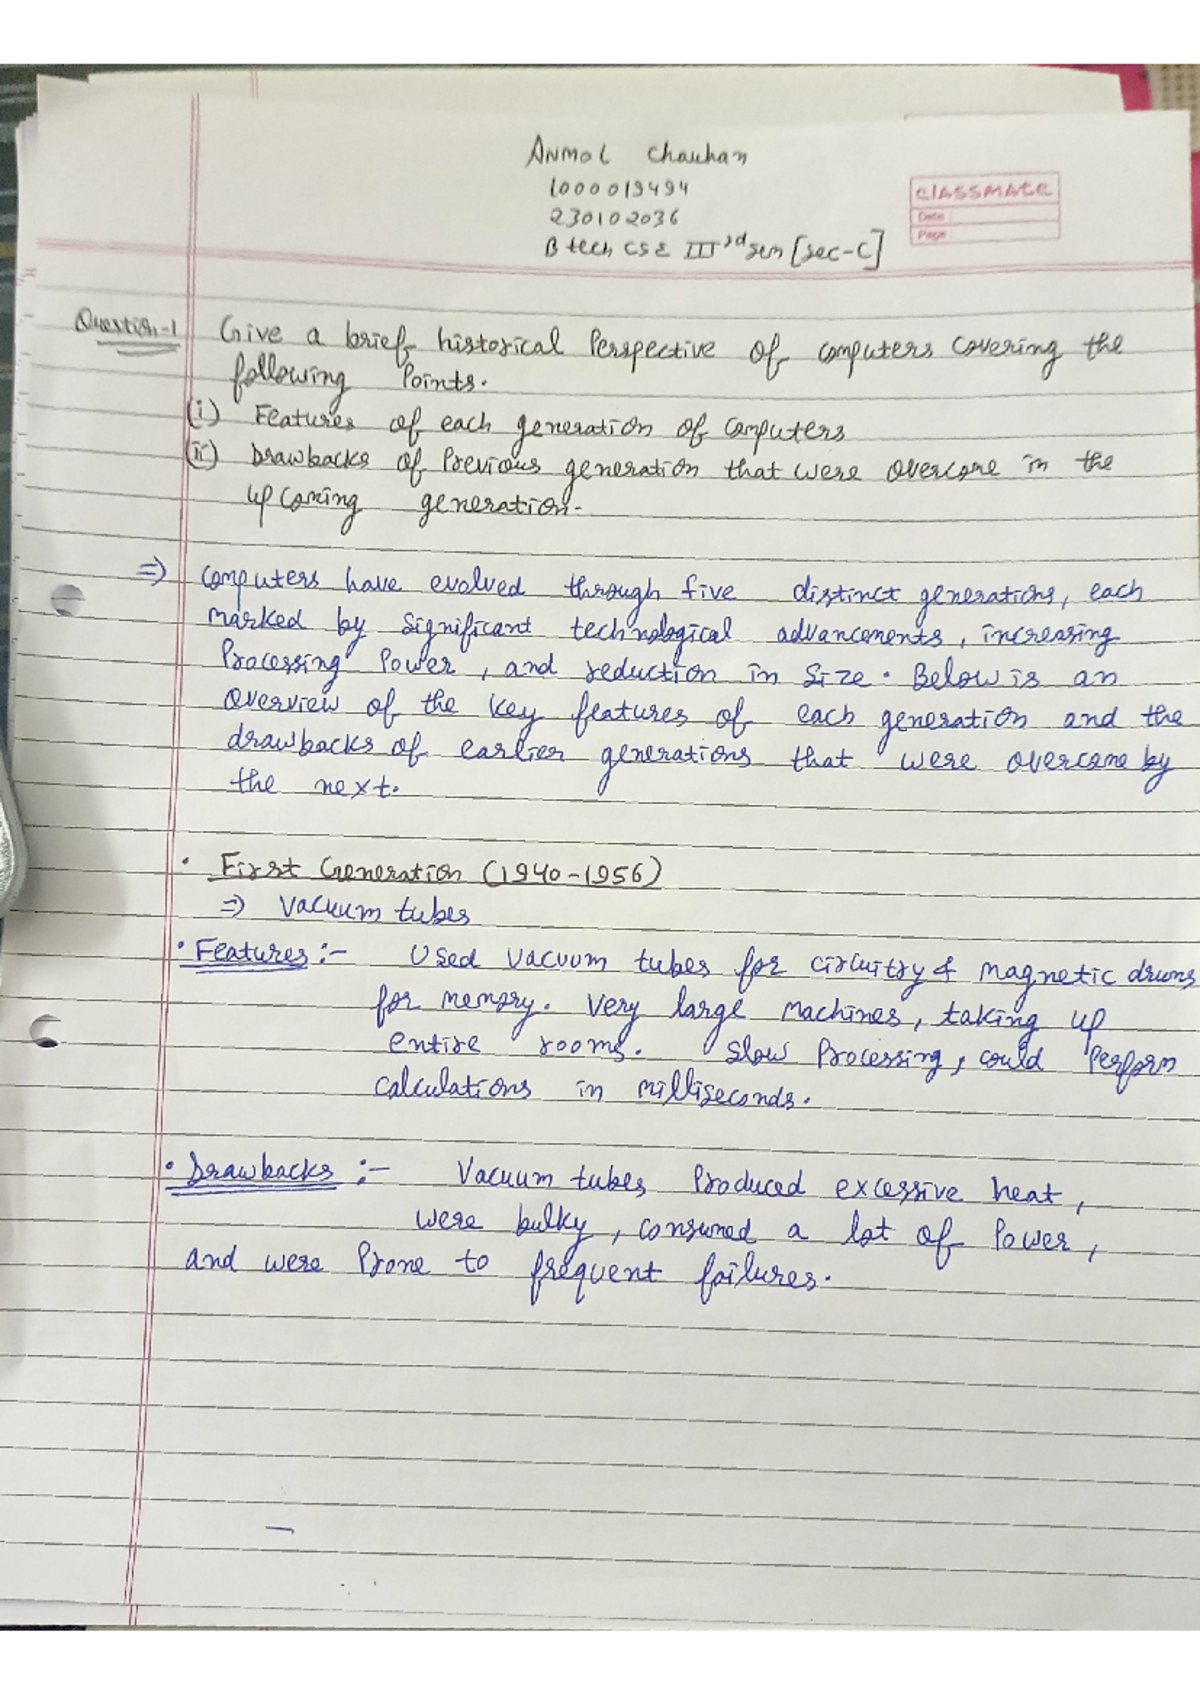 ANMOL Chauhan
1000019494
230102036
B tech CSE III rd sem [sec-C]
CLASSMATE
Date :
Page :
Question-1 Give a brief historical Perspective of computers covering the
following Points.
(i) Features of each generation of computers
(ii) Drawbacks of Previous generation that were overcome in the
upcoming generation.
⇒ Computers have evolved through five distinct generations, each
marked by significant technological advancements, increasing
Processing Power, and reduction in size. Below is an
overview of the key features of each generation and the
drawbacks of earlier generations that were overcome by
the next.
• First Generation (1940-1956)
⇒ Vacuum tubes
• Features :- Used vacuum tubes for circuitry & magnetic drums
for memory. Very large machines, taking up
entire rooms. Slow Processing, could Perform
calculations in milliseconds.
• Drawbacks :- Vacuum tubes Produced excessive heat,
were bulky, consumed a lot of Power,
and were Prone to frequent failures.